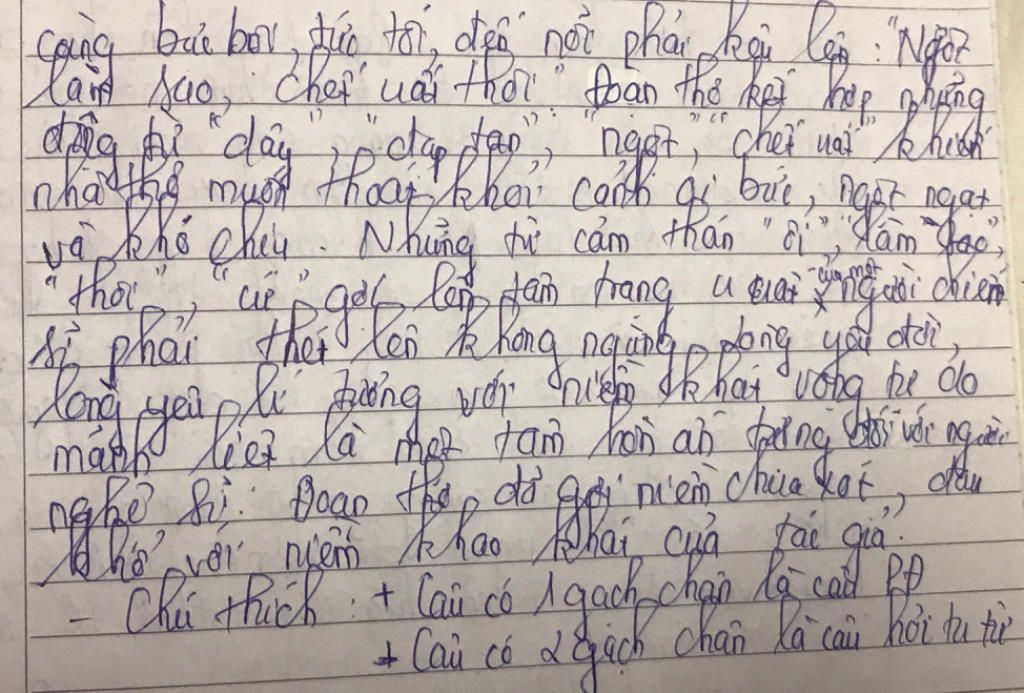 càng bức bối, tức tối, đến nỗi phải kêu lên: "Ngột
làm sao, chết uất thôi" Đoạn thơ kết hợp những
động từ "dậy", "đạp tan", "ngột", "chết uất" khiến
nhà thơ muốn thoát khỏi cảnh gi bức, ngột ngạt
và khó chịu. Những từ cảm thán "ôi", "làm sao",
"thôi", "cứ" gợi lên tâm trạng u uất của một người chiến
sĩ phải thét lên không ngừng, lòng yêu đời,
lòng yêu lí tưởng với niềm khát vọng tự do
mãnh liệt là một tâm hồn ấn tượng đối với người
nghệ sĩ. Đoạn thơ đã gợi niềm chua xót, đau
khổ với niềm khao khát của tác giả."
- Chú thích: + Câu có 1 gạch chân là câu PĐ
+ Câu có 2 gạch chân là câu hỏi tu từ